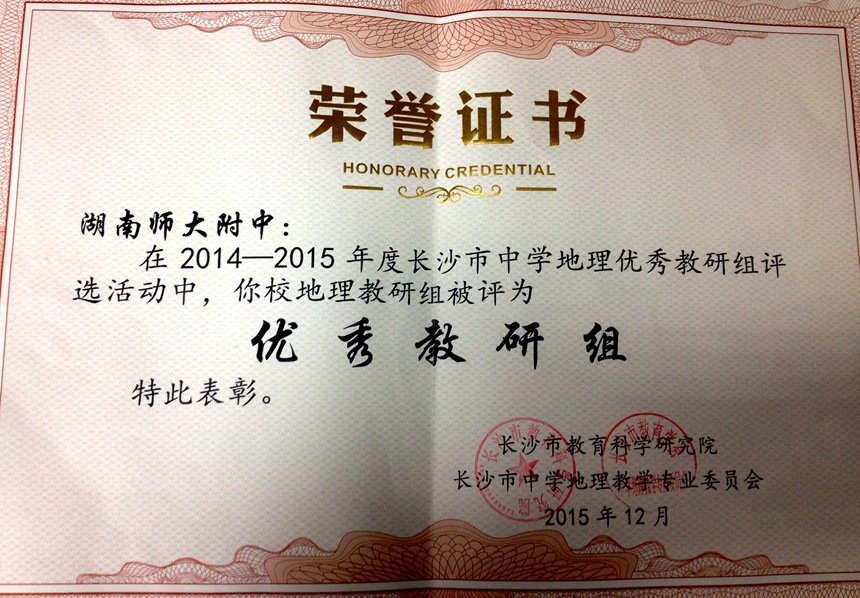 荣誉证书
HONORARY CREDENTIAL
湖南师大附中：
在 2014—2015 年度长沙市中学地理优秀教研组评
选活动中，你校地理教研组被评为
优秀教研组
特此表彰。
长沙市教育科学研究院
长沙市中学地理教学专业委员会
2015 年 12 月